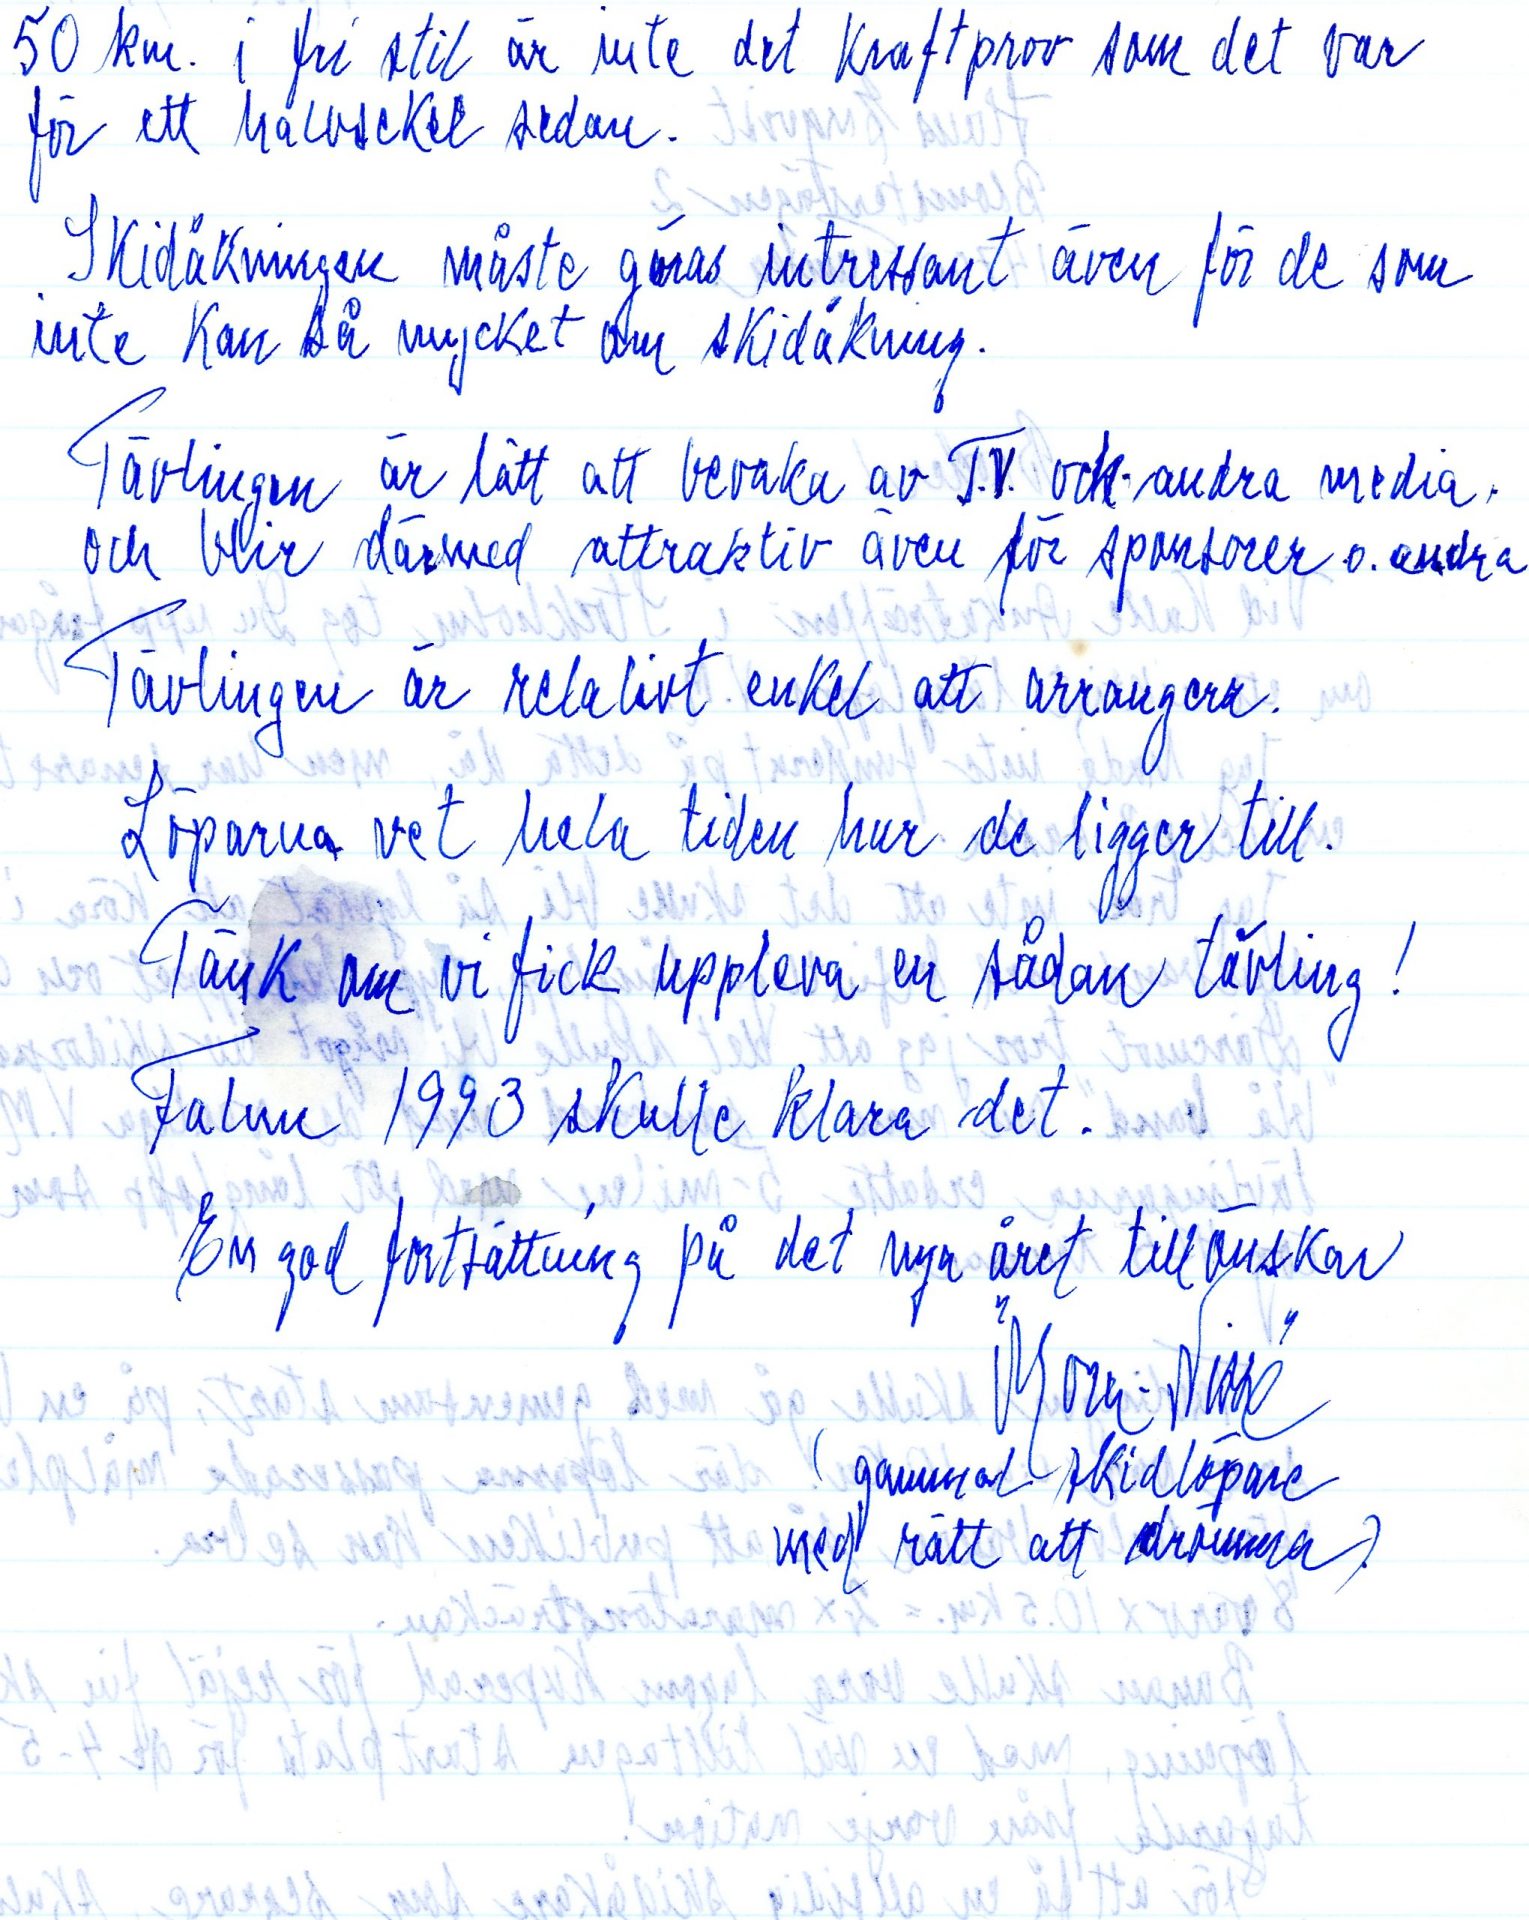 50 km. i fri stil är inte det kraftprov som det var
för ett halvsekel sedan.
Skidåkningen måste göras intressant även för de som
inte kan så mycket om skidåkning.
Tävlingen är lätt att bevaka av T.V. och andra media.
och blir därmed attraktiv även för sponsorer o. andra
Tävlingen är relativt enkel att arrangera.
Löparna vet hela tiden hur de ligger till.
Tänk om vi fick uppleva en sådan tävling!
Falun 1993 skulle klara det.
En god fortsättning på det nya året tillönskar
"Mora-Nisse"
(gammal skidlöpare
med rätt att drömma)